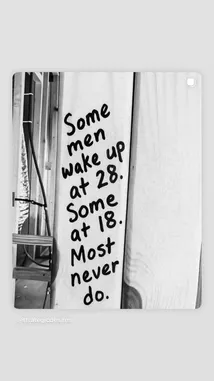 Some
men
wake up
at 28.
Some
at 18.
Most
never
do.